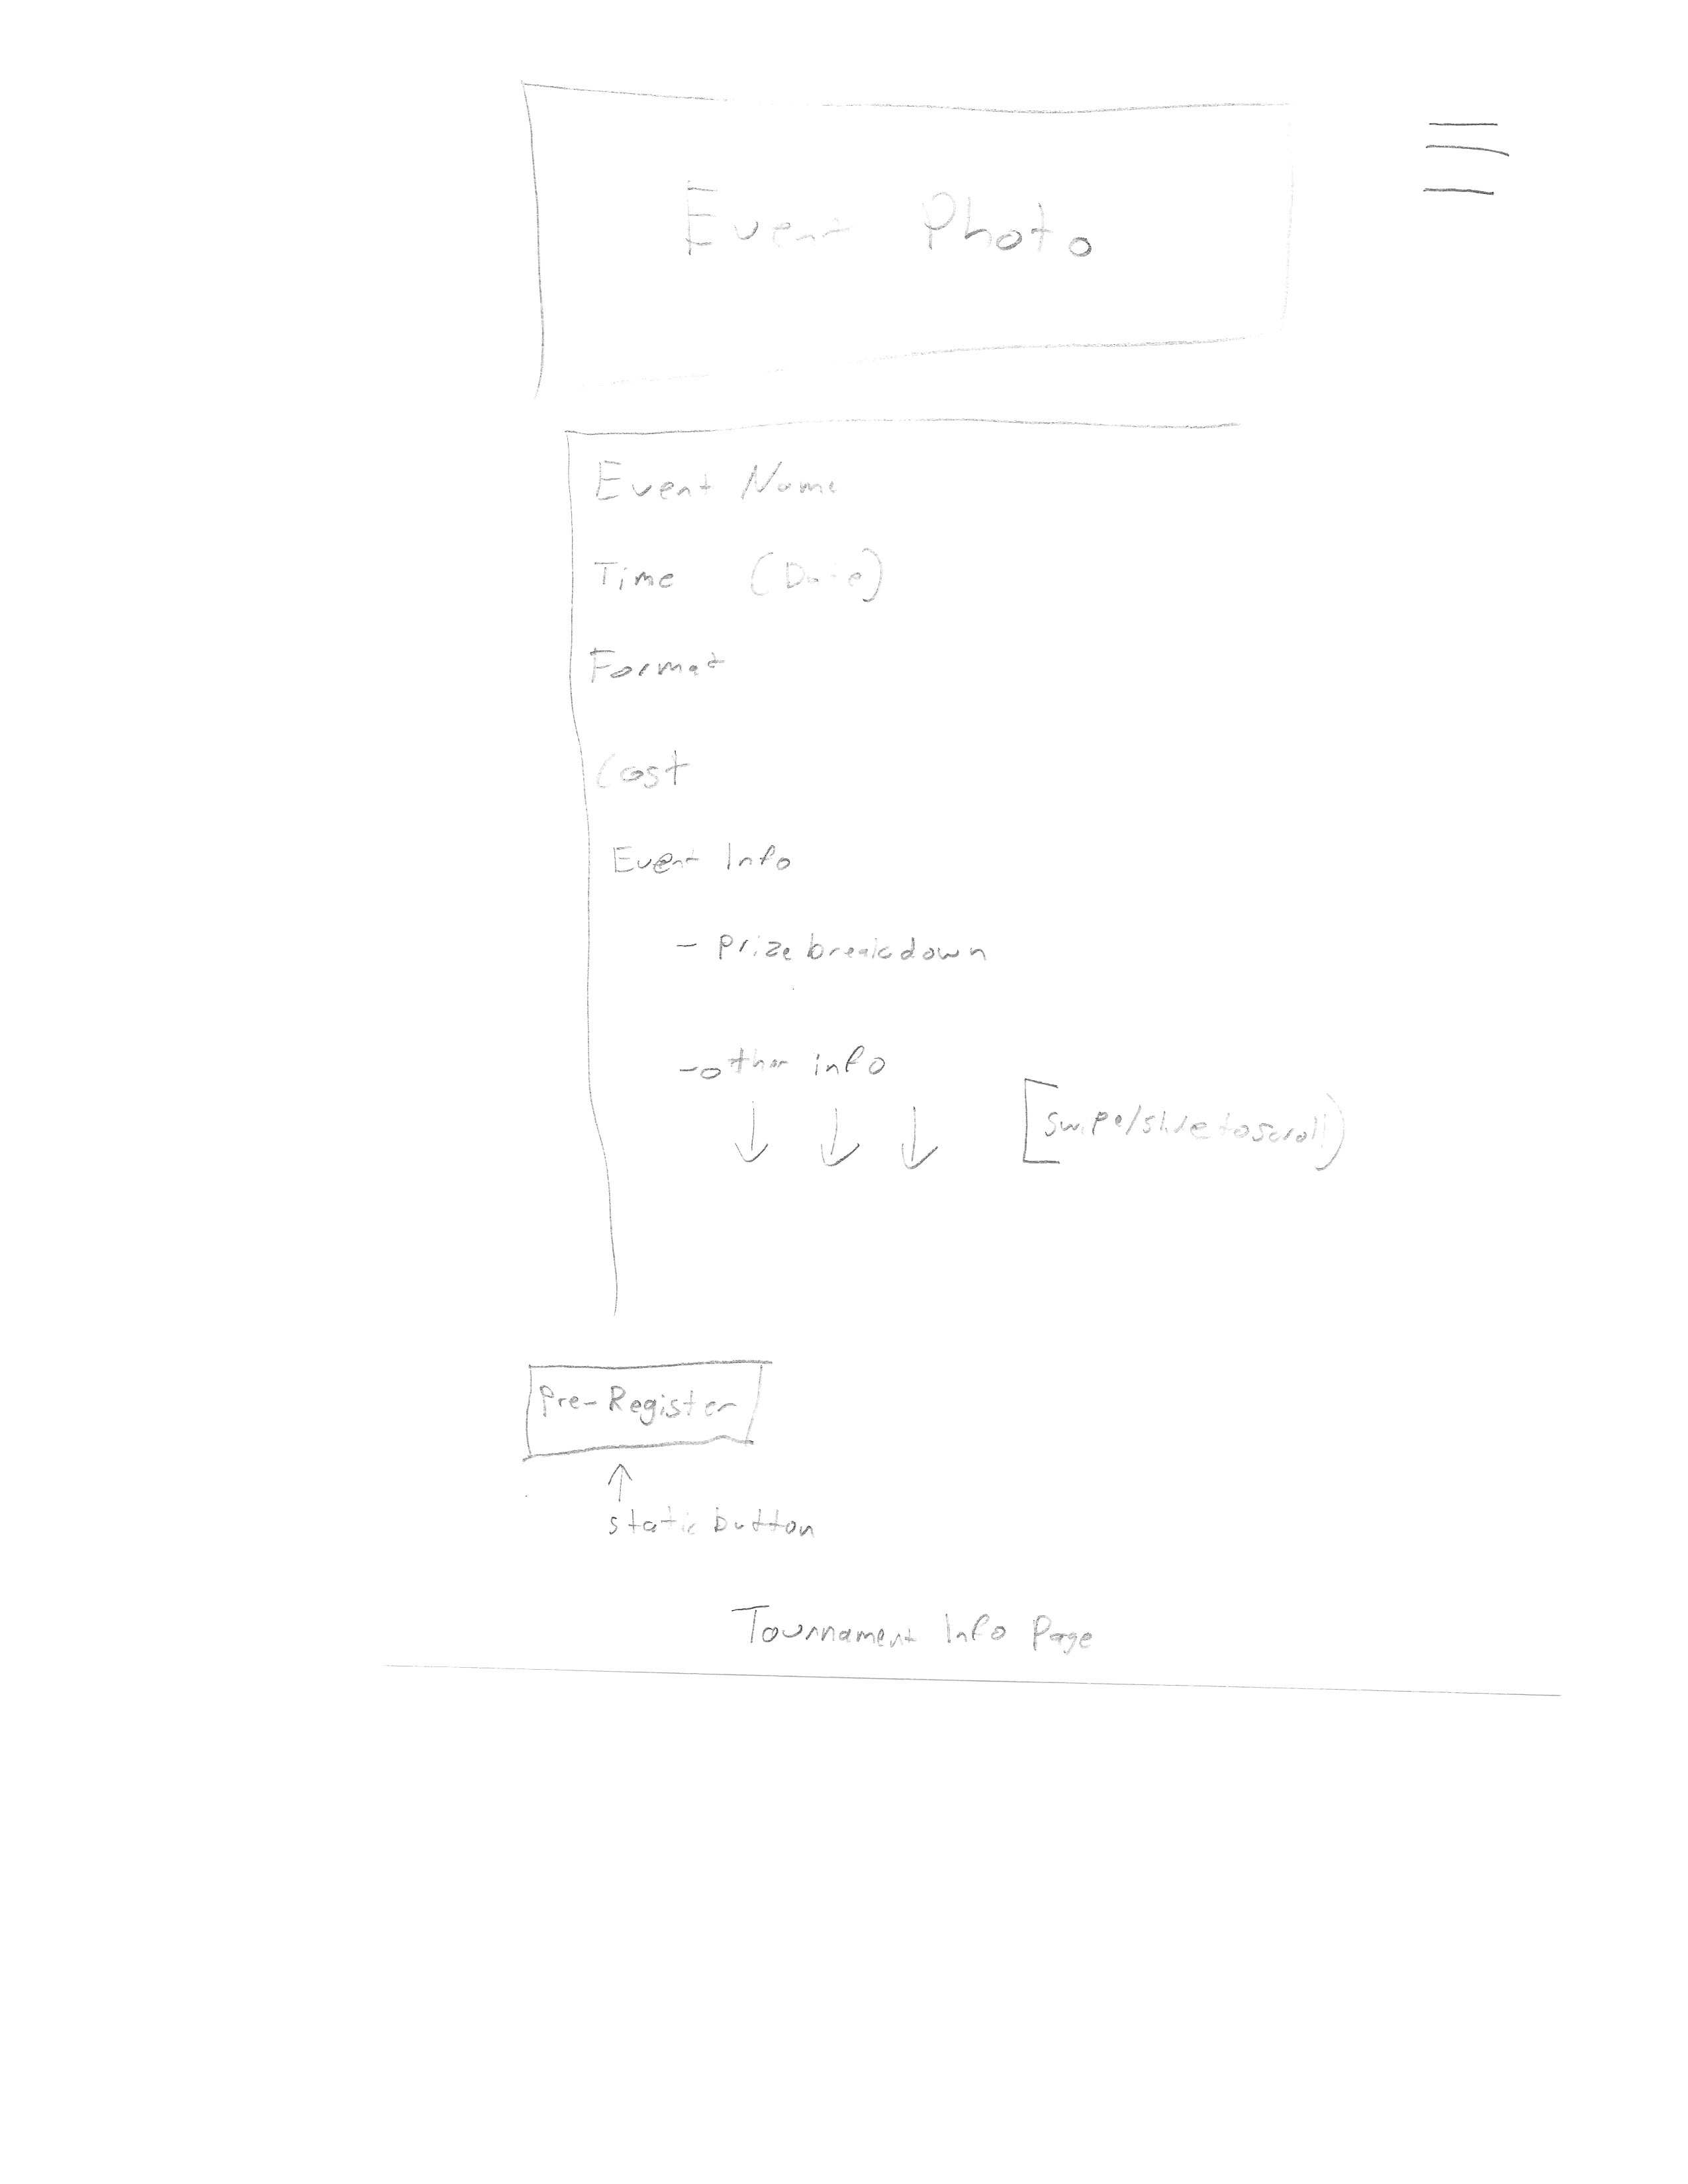 Event Photo
Event Name
Time (Date)
Format
Cost
Event Info
- prize breakdown
- other info
[swipe/slide to scroll)
Pre-Register
static button
Tournament Info Page